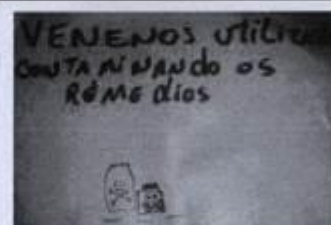 VENENOS
CONTAMINANDO OS
REMEDIOS